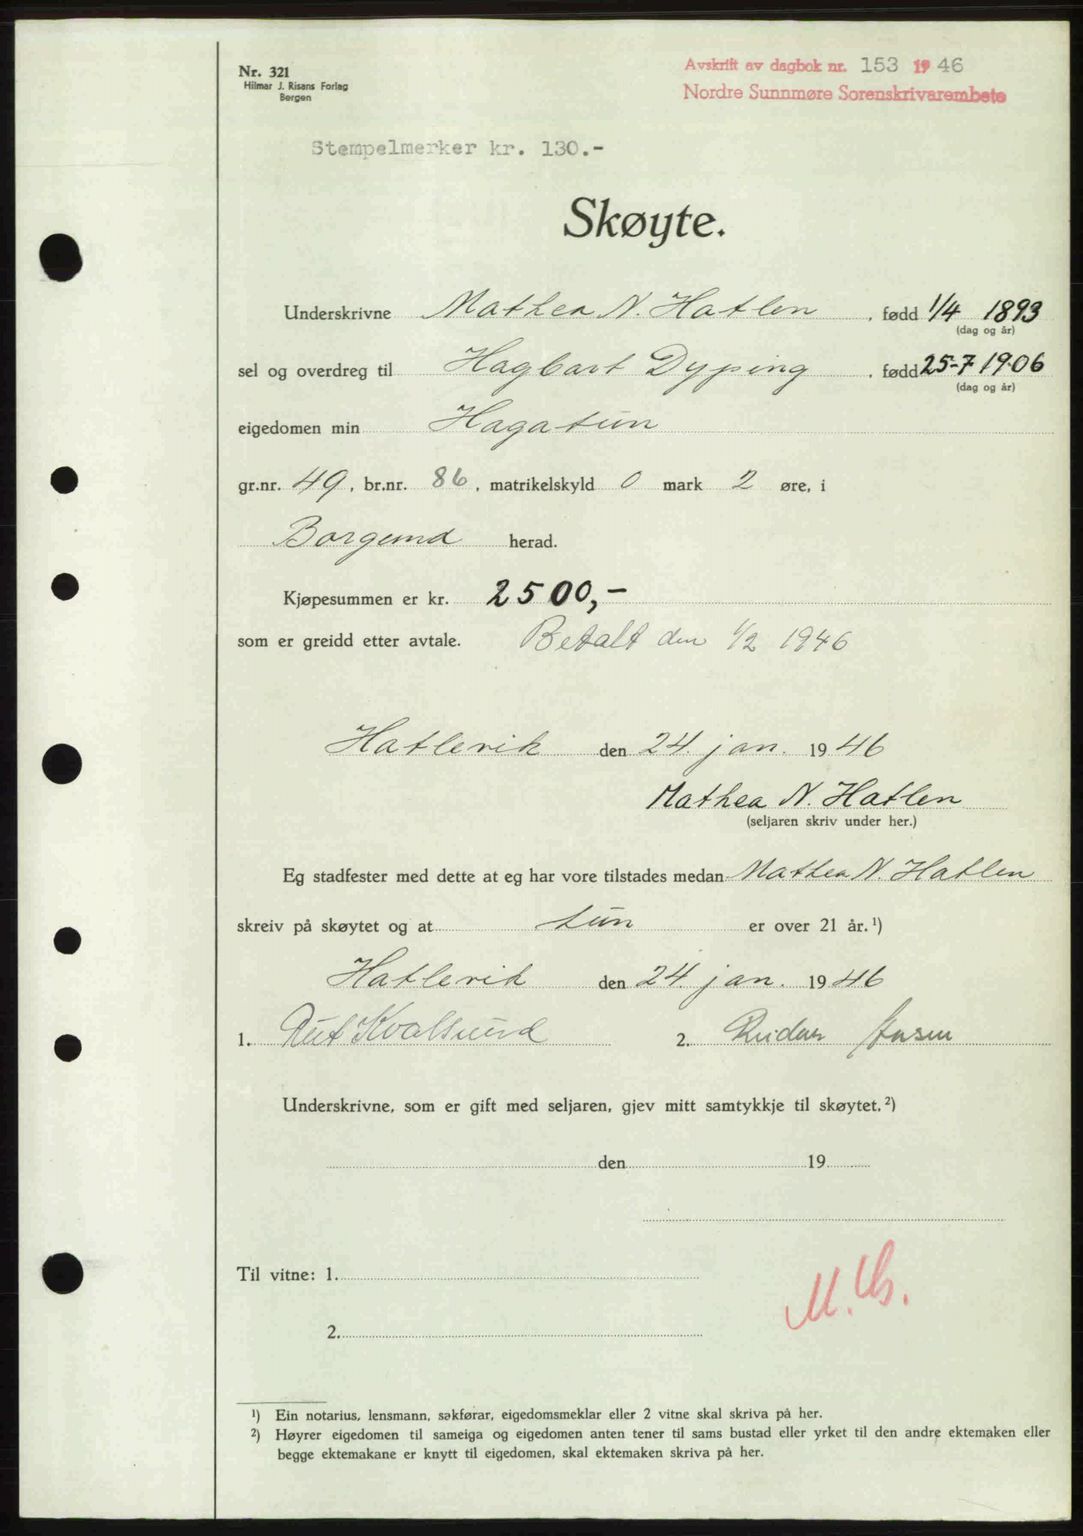 Nr. 321
Hilmar J. Risans Forlag
Bergen
Avskrift av dagbok nr. 153 1946
Nordre Sunnmøre Sorenskrivarembete
Stempelmerker kr. 130.-
Skøyte.
Underskrivne Mathea N. Hatlen, fødd 1/4 1893
(dag og år)
sel og overdreg til Hagbart Dyping, fødd 25-7 1906
(dag og år)
eigedomen min Hagatun
gr.nr. 49, br.nr. 86, matrikelskyld 0 mark 2 øre, i
Borgund herad.
Kjøpesummen er kr. 2500,-
som er greidd etter avtale. Betalt den 1/2 1946
Hatlevik den 24. jan. 1946
Mathea N. Hatlen
(seljaren skriv under her.)
Eg stadfester med dette at eg har vore tilstades medan Mathea N. Hatlen
skreiv på skøytet og at er over 21 år.¹)
Hatlevik den 24. jan. 1946
1. Rut Kvalsund 2. Reidar
Underskrivne, som er gift med seljaren, gjev mitt samtykkje til skøytet.²)
den 19
Til vitne: 1.
2.
¹) Ein notarius, lensmann, sakførar, eigedomsmeklar eller 2 vitne skal skriva på her.
²) Høyrer eigedomen til sameiga og eigedomen anten tener til sams bustad eller yrket til den andre ektemaken eller
begge ektemakane er knytt til eigedomen, skal ektemaken skriva på her.